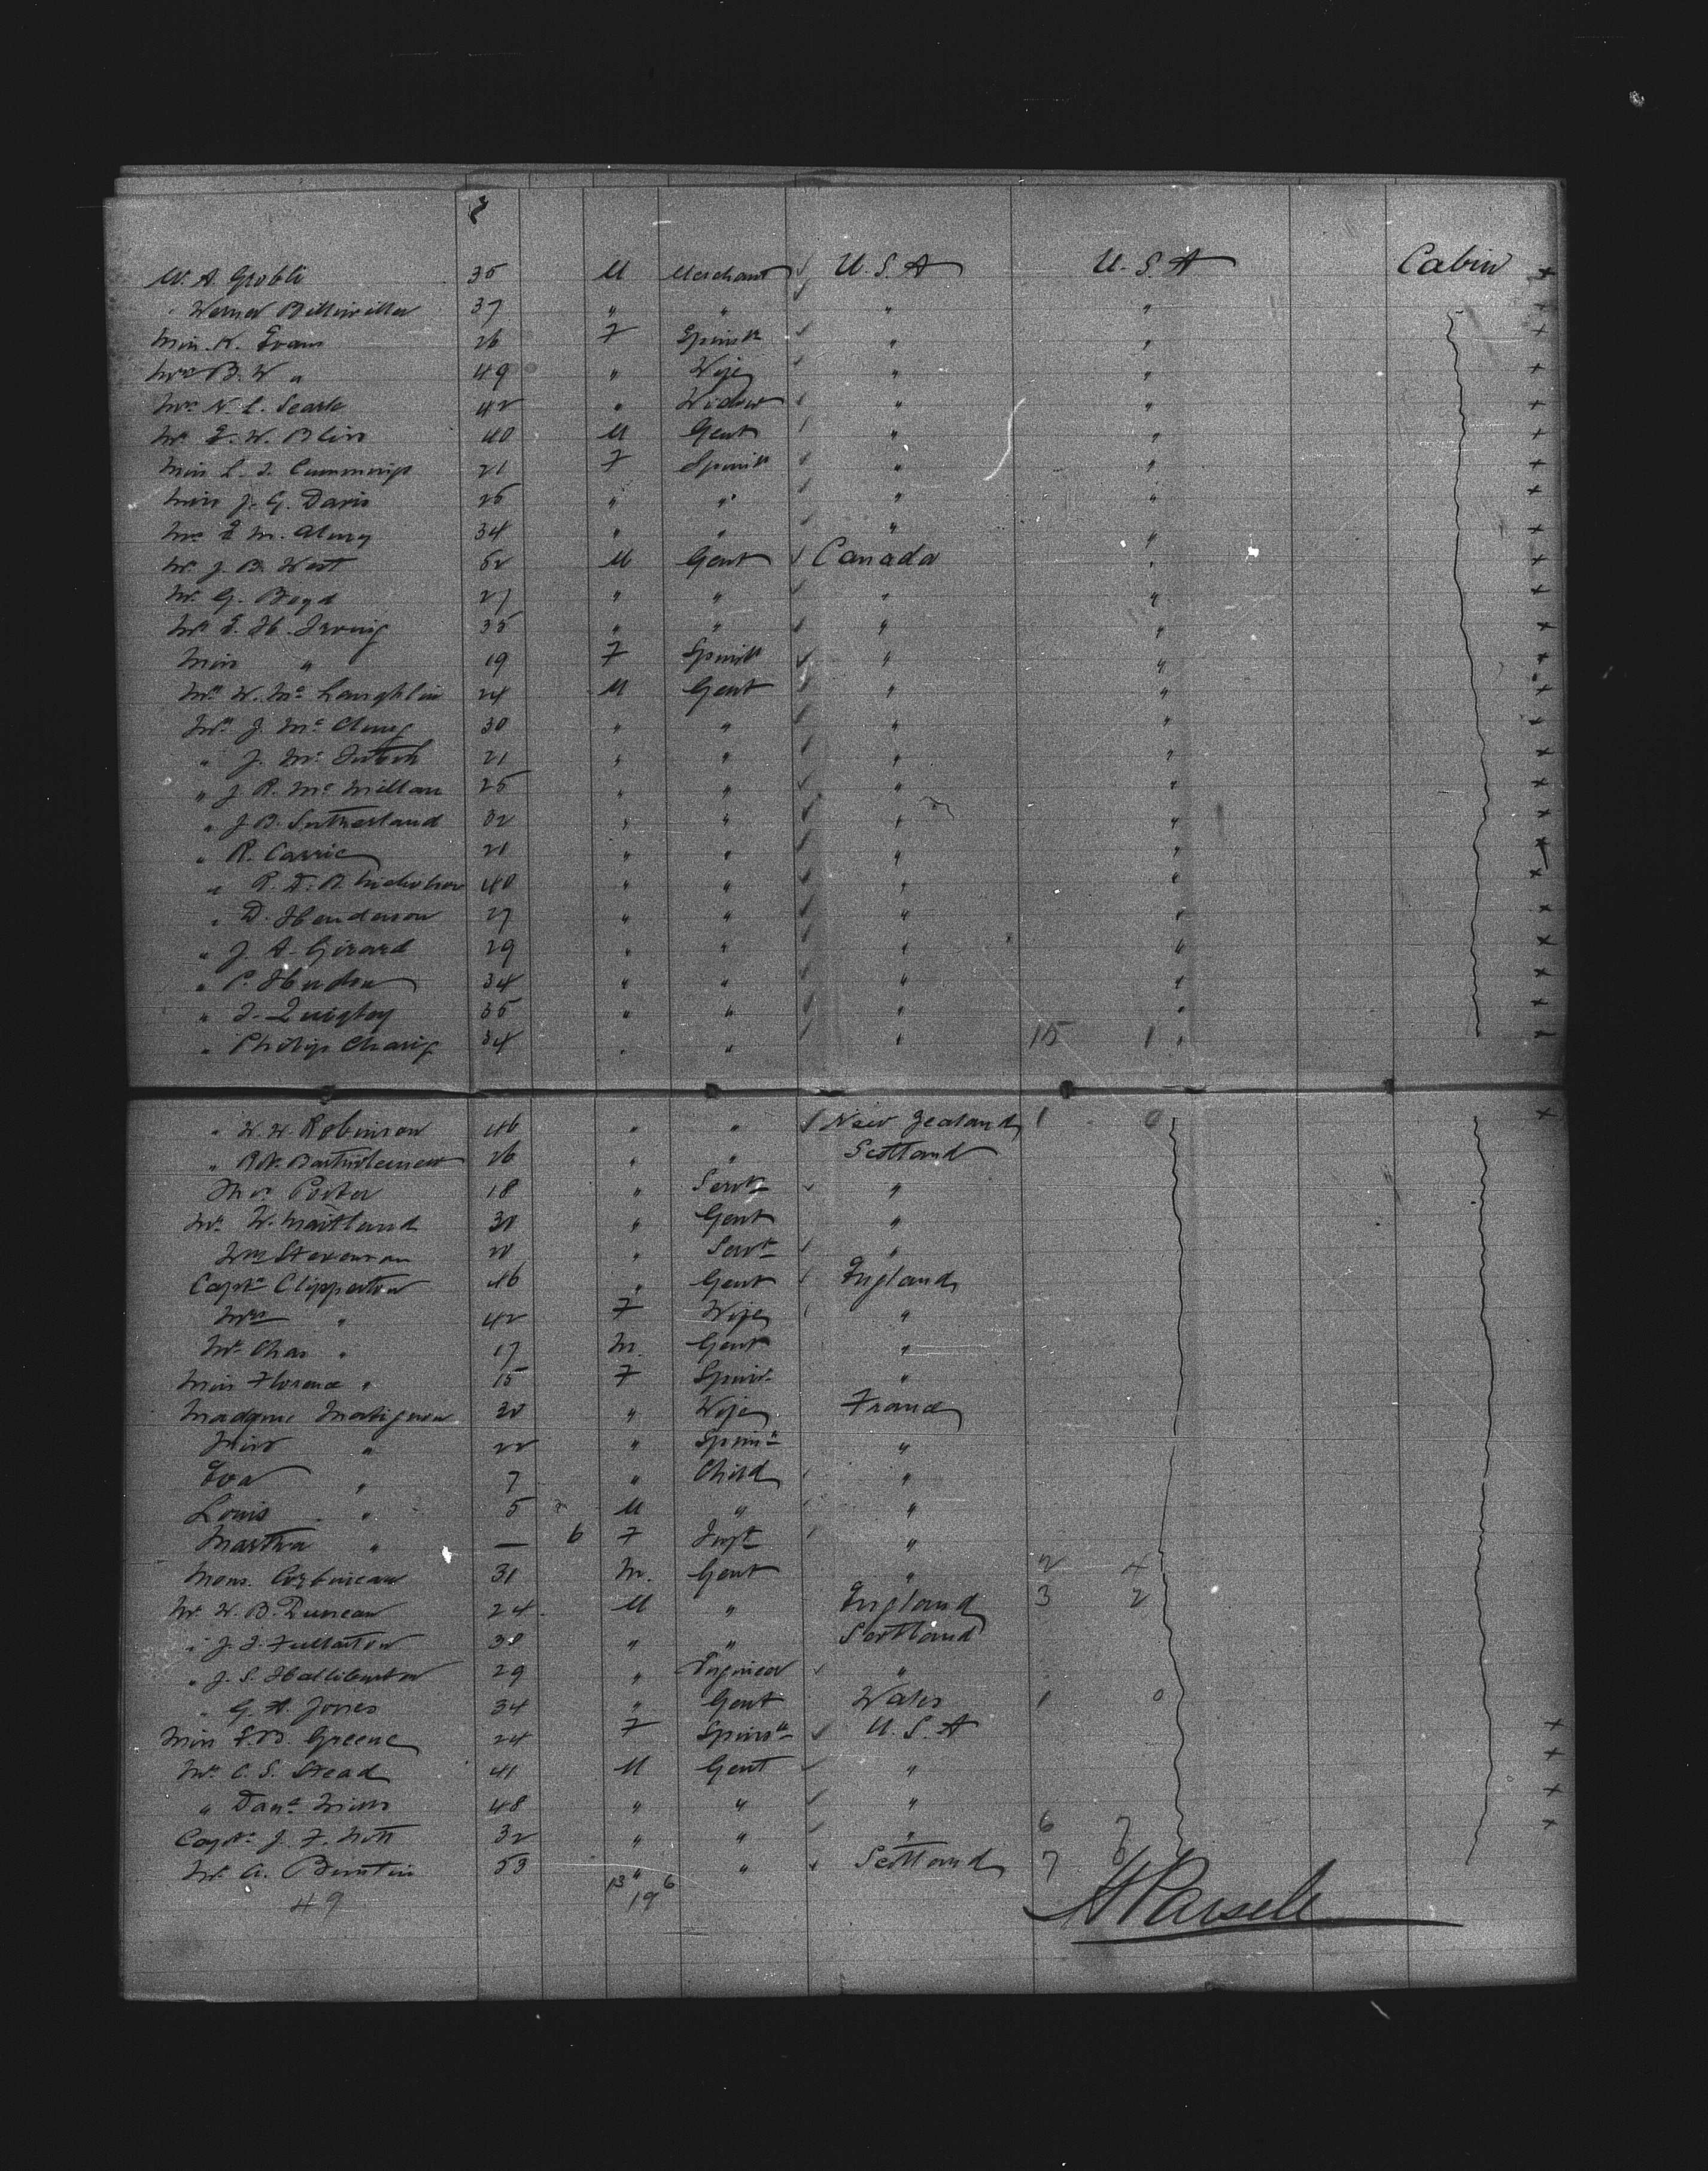 Mr. A. Grobli 35 M Merchant U.S.A U.S.A Cabin
" Werner 37 " " " "
Miss K. Evans 26 F Spinstr " "
Mrs B. W " 49 " Wife " "
Mrs N. L. Searle 42 " Widow " "
Mr E. W. Blin 40 M Gent " "
Miss L. J. Cummings 21 F Spinstr " "
Miss J. G. Davis 25 " " " "
34 " " " "
Mr. J. B. West 52 M Gent Canada "
Mr. G. Boyd 27 " " " "
Mr E. H. Irving 35 " " " "
Miss " 19 F Spinstr " "
Mr. W. Mc Laughlin 24 M Gent " "
Mr. J. Mc Clung 30 " " " "
" J. Mc Intosh 21 " " " "
" J. R. Mc Millan 25 " " " "
" J. B. Sutherland 32 " " " "
" R. Carrie 21 " " " "
" R. D. B. Nicholson 40 " " " "
" D. Henderson 27 " " " "
" J. A. Girard 29 " " " "
" P. Hudon 34 " " " "
" J. Quigley 35 " " " "
" Philip 34 " " " 15 1 "
" W. W. Robinson 46 " " New Zealand 1 0
" Bartholemew 26 " " Scotland
Porter 18 " Servt "
Mr. W. Maitland 30 " Gent "
Wm Stevenson 20 " Servt "
Captn Clipperton 46 " Gent England
Mrs " 42 F Wife "
Mr. Chas " 17 M. Gent "
Miss Florence " 15 F Spinst "
Madame Martignon 30 " Wife France
Miss " 22 " Spinst "
Eva " 7 " Child "
Louis " 5 M " "
Martha " — 6 F Inft "
Mons. Corbineau 31 M. Gent " 2 4
Mr. W. B. Duncan 24 M " England 3 2
" J. J. Fullarton 30 " " Scotland
" J. S. Halliburton 29 " Engineer "
" G. A. Jones 34 " Gent Wales 1 0
Miss E. B. Greene 24 F Spinstr U.S.A
Mr. C. S. Stead 41 M Gent "
" 48 " " "
Captn J. F. Nott 32 " " " 6 7
Mr. A. 53 " " Scotland 7 0
49 13 19 6 Parsell